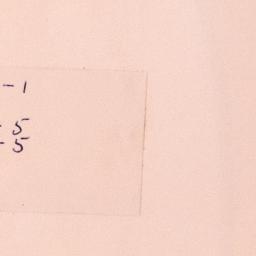 - 1
- 5
- 5